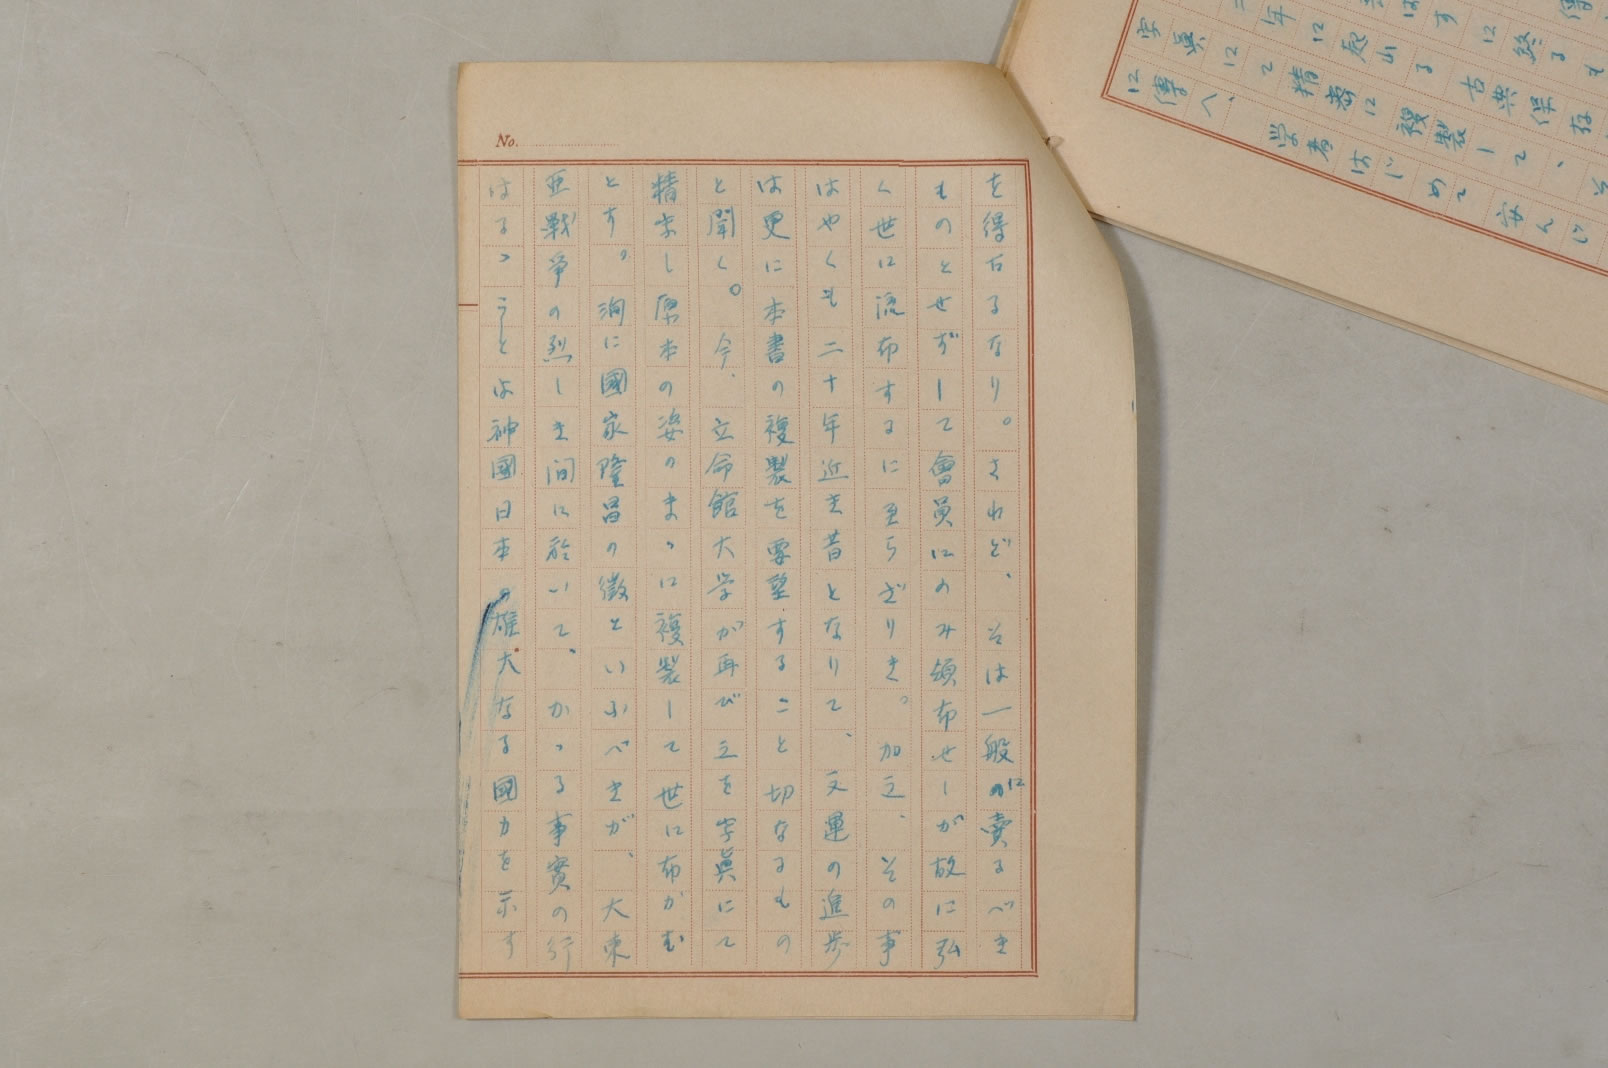 No.
を得たるなり。されど、そは一般に賣るべき
ものとせずして會員にのみ頒布せしが故に弘
く世に流布するに至らざりき。加之、その事
はやくも二十年近き昔となりて、文運の進歩
は更に本書の複製を要望すること切なるもの
と聞く。今、立命館大学が再び之を字眞にて
精密し原本の姿のまゝに複製して世に布かむ
とす。洵に國家隆昌の徴といふべきが、大東
亜戰爭の烈しき間に於いて、かゝる事實の行
はるゝことは神國日本の雄大なる國力を示す
年に成れる古典保存
字眞にて精密に複製して、
に傳へ、学者はじめて安んじ